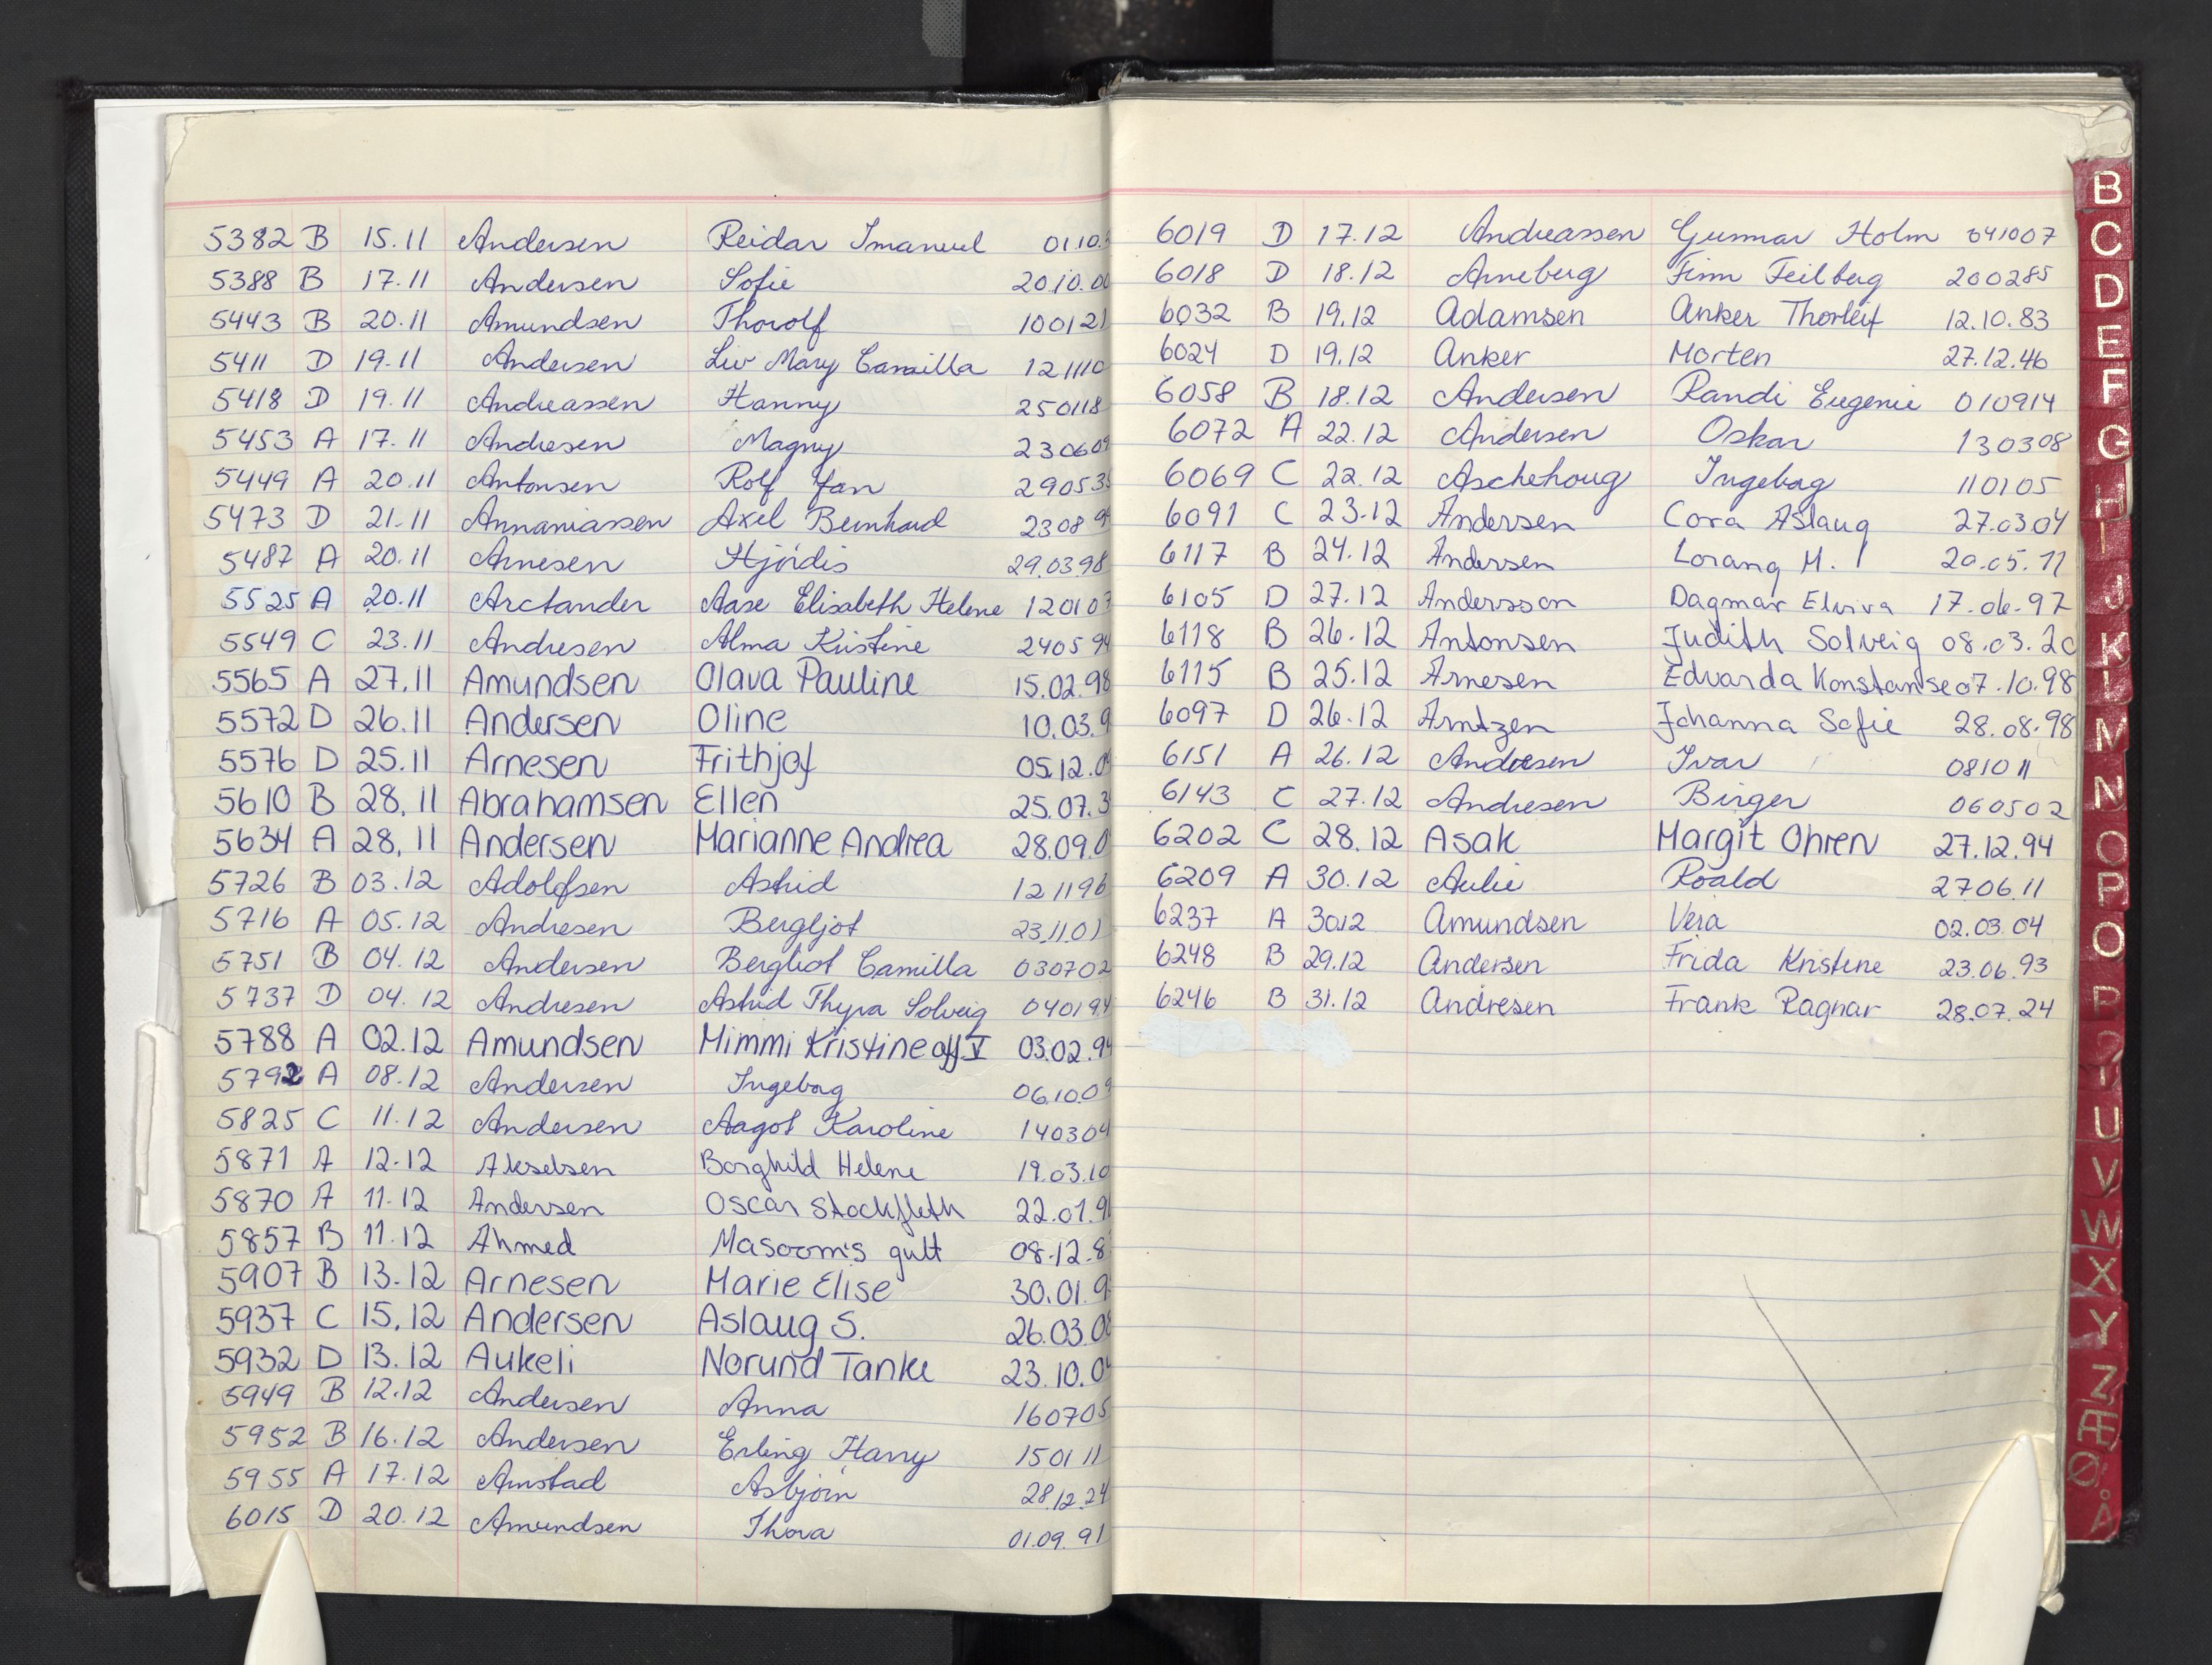 5382 B 15.11 Andersen Reidar Imanuel 01.10.
5388 B 17.11 Andersen Sofie 20.10.00
5443 B 20.11 Amundsen Thorolf 100121
5411 D 19.11 Andersen Liv Mary Camilla 121110
5418 D 19.11 Andreassen Hanny 250118
5453 A 17.11 Andresen Magny 230609
5449 A 20.11 Antonsen Rolf Jan 29053
5473 D 21.11 Annaniassen Axel Bernhard 2308 99
5487 A 20.11 Arnesen Hjördis 29.03.98
5525 A 20.11 Arctander Aase Elisabeth Helene 120107
5549 C 23.11 Andresen Alma Kristine 2405 94
5565 A 27.11 Amundsen Olava Pauline 15.02.98
5572 D 26.11 Andersen Oline 10.03.9
5576 D 25.11 Arnesen Frithjof 05.12.0
5610 B 28.11 Abrahamsen Ellen 25.07.3
5634 A 28.11 Andersen Marianne Andrea 28.09.0
5726 B 03.12 Adolfsen Astrid 121196
5716 A 05.12 Andresen Bergljot 23.11.01
5751 B 04.12 Andersen Bergliot Camilla 030702
5737 D 04.12 Andresen Astrid Thyra Solveig 040194
5788 A 02.12 Amundsen Mimmi Kristine off. V 03.02.94
5792 A 08.12 Andersen Ingeborg 06.10.09
5825 C 11.12 Andersen Aagot Karoline 140304
5871 A 12.12 Akselsen Borghild Helene 19.03.10
5870 A 11.12 Andersen Oscar Stockfleth 22.01.9
5857 B 11.12 Ahmed Masoom's gutt 08.12.8
5907 B 13.12 Arnesen Marie Elise 30.01.9
5937 C 15.12 Andersen Aslaug S. 26.03.08
5932 D 13.12 Aukeli Norund Tanke 23.10.0
5949 B 12.12 Andersen Anna 160705
5952 B 16.12 Andersen Erling Harry 150111
5955 A 17.12 Amstad Asbjörn 28.12.24
6015 D 20.12 Amundsen Thora 01.09.91
6019 D 17.12 Andreassen Gunnar Holm 041007
6018 D 18.12 Arneberg Finn Feilberg 200285
6032 B 19.12 Adamsen Anker Thorleif 12.10.83
6024 D 19.12 Anker Morten 27.12.46
6058 B 18.12 Andersen Randi Eugenie 010914
6072 A 22.12 Andersen Oskar 130308
6069 C 22.12 Aschehoug Ingeborg 110105
6091 C 23.12 Andersen Cora Aslaug 27.03.04
6117 B 24.12 Andersen Lorang M. 20.05.11
6105 D 27.12 Andersson Dagmar Elvira 17.06.97
6118 B 26.12 Antonsen Judith Solveig 08.03.20
6115 B 25.12 Arnesen Edvarda Konstanse 07.10.98
6097 D 26.12 Arntzen Johanna Sofie 28.08.98
6151 A 26.12 Andresen Ivar 081011
6143 C 27.12 Andresen Birger 060502
6202 C 28.12 Asak Margit Ohren 27.12.94
6209 A 30.12 Aulie Roald 270611
6237 A 30.12 Amundsen Vera 02.03.04
6248 B 29.12 Andersen Frida Kristine 23.06.93
6246 B 31.12 Andresen Frank Ragnar 28.07.24
B
C
D
E
F
G
H
I
J
K
L
M
N
O
P
O
P
U
V
W
X
Y
Z
Æ
Ø
Å